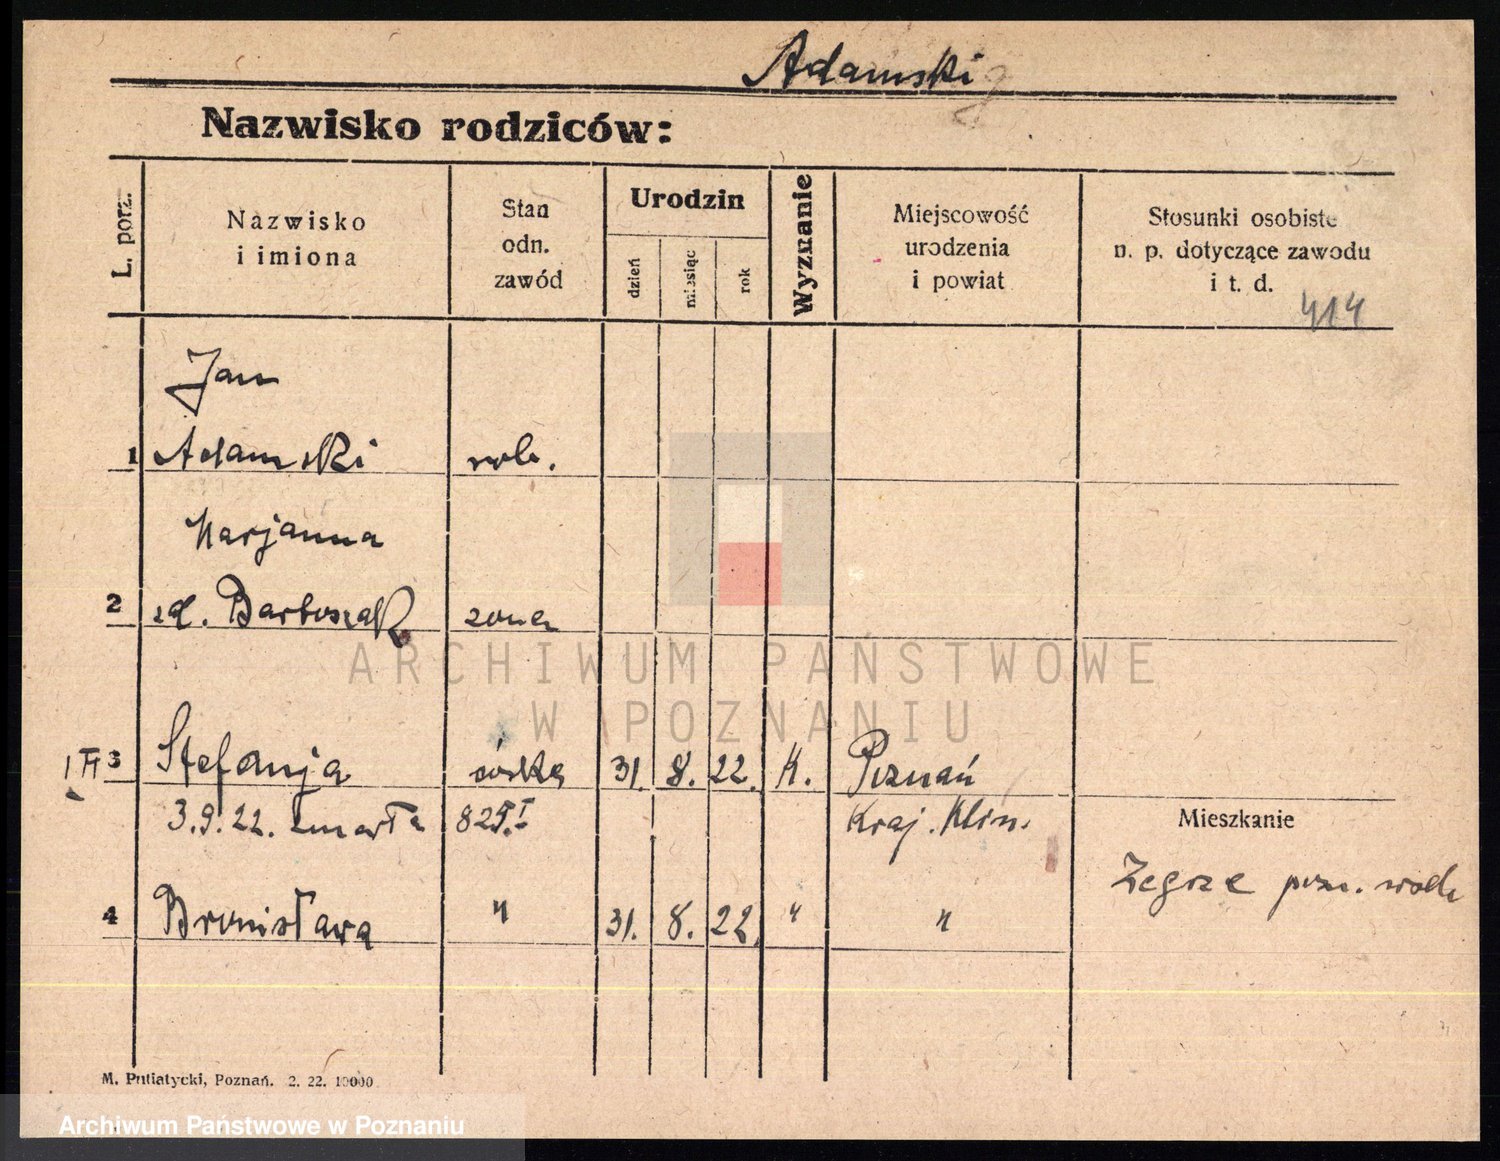 Adamski
Nazwisko rodziców:
L. porz.
Nazwisko
i imiona
Stan
odn.
zawód
Urodzin
dzień
miesiąc
rok
Wyznanie
Miejscowość
urodzenia
i powiat
Stosunki osobiste
n. p. dotyczące zawodu
i t. d.
414
Jan
1 Adamski rob.
Marjanna
2 zd. Bartoszak żona
3 Stefanja córka 31. 8. 22. K. Poznań
3.9.22. zmarła 825.I Kraj. Klin.
Mieszkanie
Żegrze pozn.
4 Bronisława " 31. 8. 22. " "
M. Putiatycki, Poznań. 2. 22. 10000
ARCHIWUM PAŃSTWOWE
W POZNANIU
Archiwum Państwowe w Poznaniu